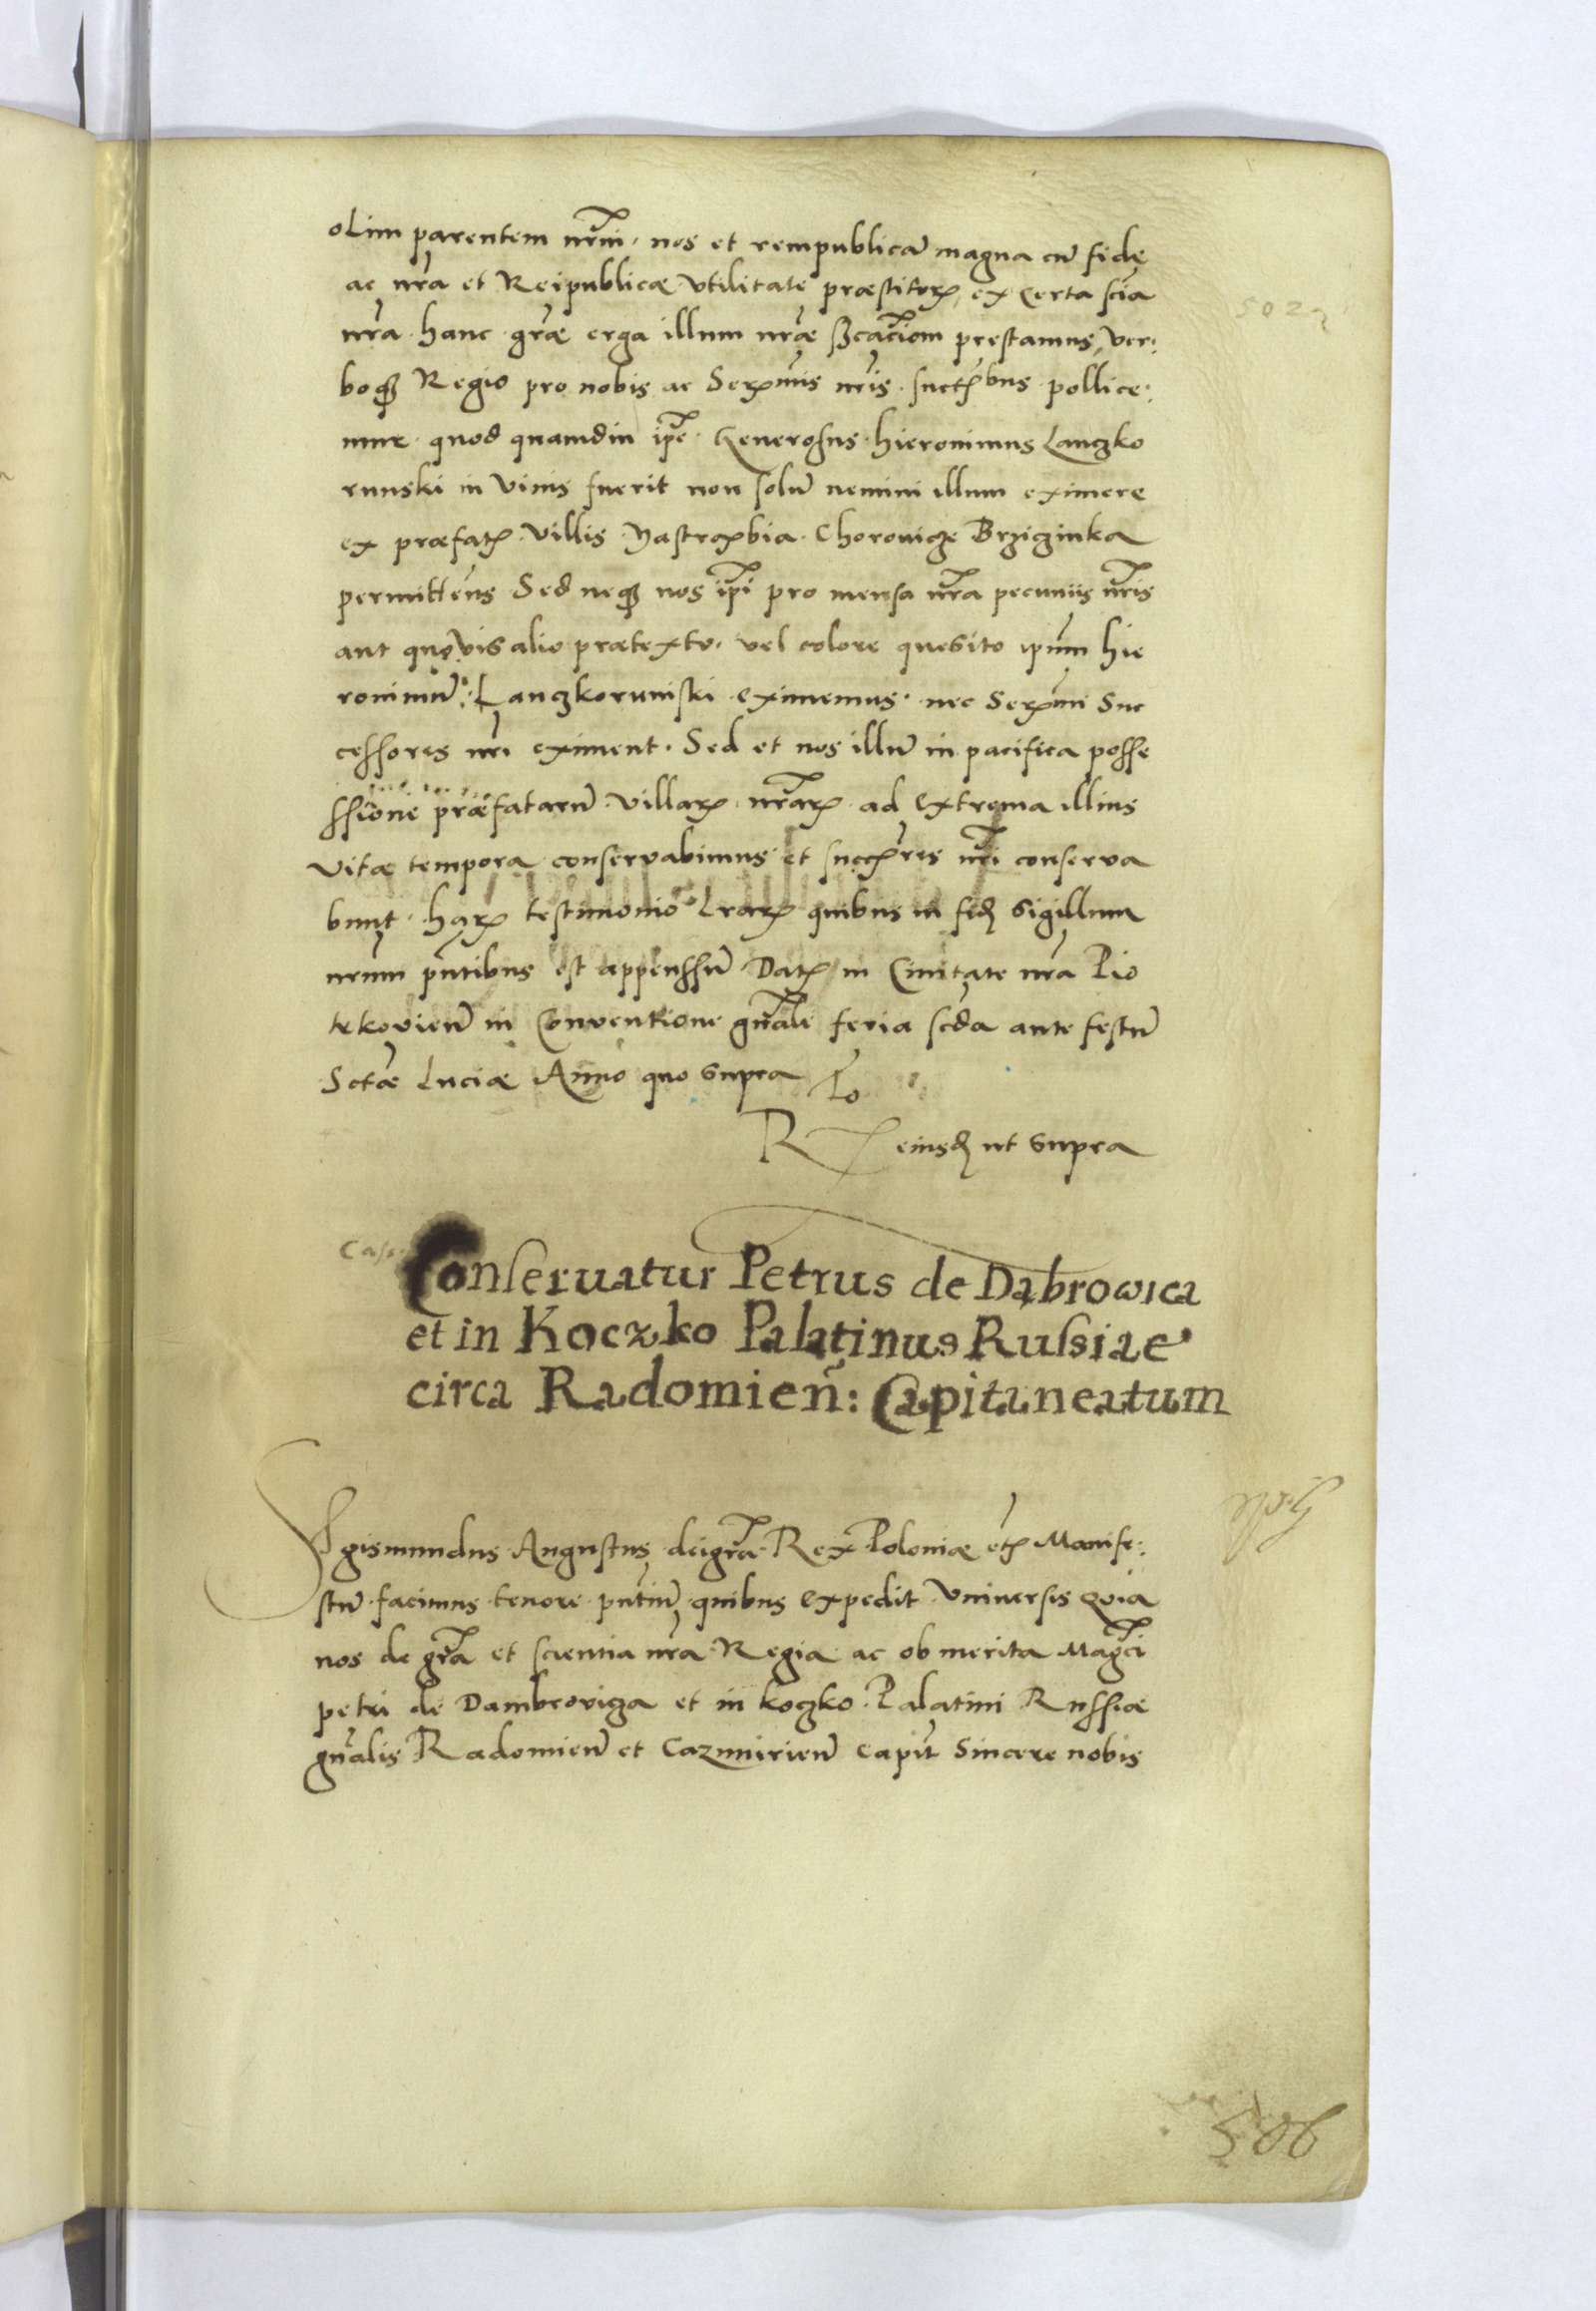 olim parentem nrm̃. nos et rempublicã magna cũ fide
ac nr̃a et Reipublicæ vtilitate præstitorꝝ, ex certa scĩa
nr̃a hanc gr̃æ erga illum nr̃æ prestamus, ver:
boqꝫ Regio pro nobis ac Serꝝmis nr̃is succꝝbus pollice:
mur quod quamdiu ip̃e Generosus hieronimus Lanczko
runski in vivis fuerit non solũ nemini illum eximere
ex præfatꝝ villis Yastrꝝbia Chorovicze Brziczinka
permittẽns Sed neqꝫ nos ip̃i pro mensa nr̃a pecuniis nr̃is
aut quovis alio prætextu. vel colore quesito ip̃um hie
ronimũ: Lanczkoruniski eximemus. nec Serꝝmi Suc
cessores nr̃i eximent. Sed et nos illũ in pacifica posse
ssione præfatarũ villarꝝ nr̃arꝝ ad extrema illius
vitæ tempora conservabimus et succꝝres nr̃i conserva
bunt. harꝝ testimonio Lrarꝝ quibus in fidꝫ sigillum
nrum pñtibus est appenssũ Datꝝ in Civitate nr̃a Pio
tekoviens̃ in Conventione gñali feria scd̃a ante festũ
Sctæ Luciæ Anno quo supra
R eiusdꝫ ut supra
502
Conseruatur Petrus de Dąbrowica
et in Koczko Palatinus Russiae
circa Radomieñ: Capitaneatum
Sigismundus Augustus deigr̃a Rex Poloniæ etꝝ Manife:
stũ facimus tenore pñtiũ quibus expedit Vniversis Quia
nos de gr̃a et scientia nr̃a Regia ac ob merita Magc̃i
petri de Dambrovicza et in koczko Palatini Russiæ
gñalis Radomieñ et Cazmirieñ capiñ Sincere nobis
506